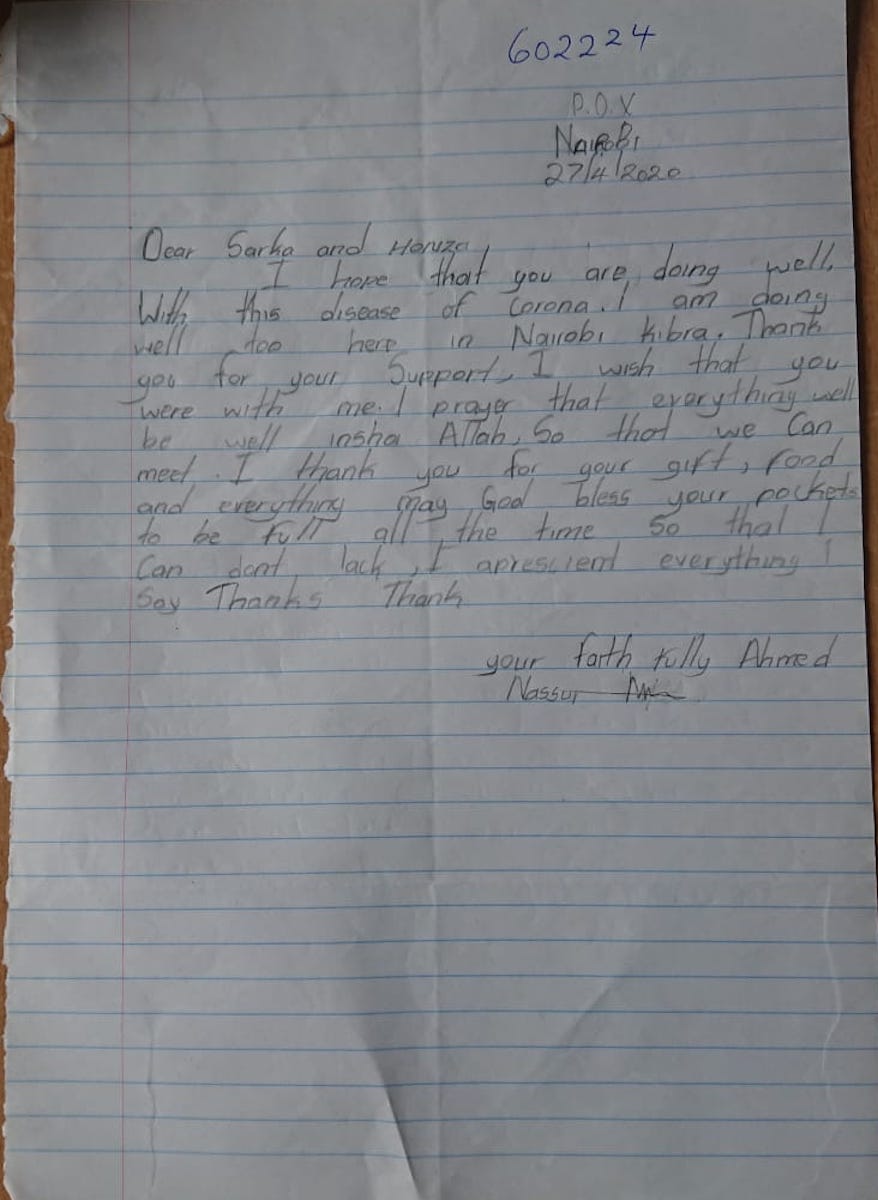 602224
P.O.X
Nairobi
27/4/2020
Dear Sarka and Honza,
I hope that you are doing well,
With this disease of Corona. I am doing
well too here in Nairobi Kibra. Thank
you for your Support, I wish that you
were with me. I prayer that everything well
be well insha Allah, So that we Can
meet. I thank you for your gift, food
and everything may God bless your pockets
to be full all the time so that I
Can dont lack, I aprescient everything I
Say Thanks Thank
your faith fully Ahmed
Nassur